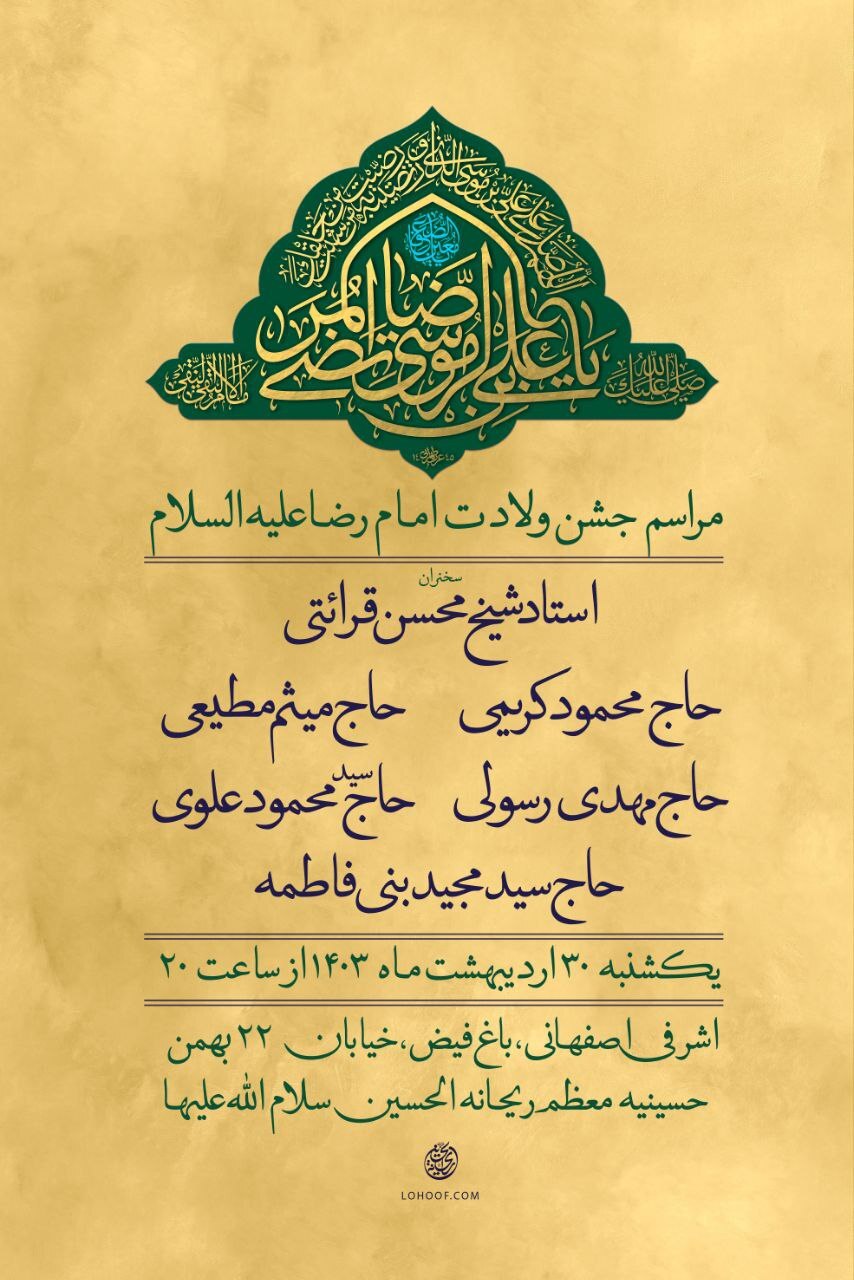 یا علی بن موسی الرضا المرتضی
صلی الله علیک
الامام التقی النقی
مراسم جشن ولادت امام رضا علیه السلام
سخنران
استاد شیخ محسن قرائتی
حاج محمود کریمی حاج میثم مطیعی
حاج مهدی رسولی حاج سید محمود علوی
حاج سید مجید بنی فاطمه
یکشنبه ۳۰ اردیبهشت ماه ۱۴۰۳ از ساعت ۲۰
اشرفی اصفهانی، باغ فیض، خیابان ۲۲ بهمن
حسینیه معظم ریحانه الحسین سلام الله علیها
LOHOOF.COM